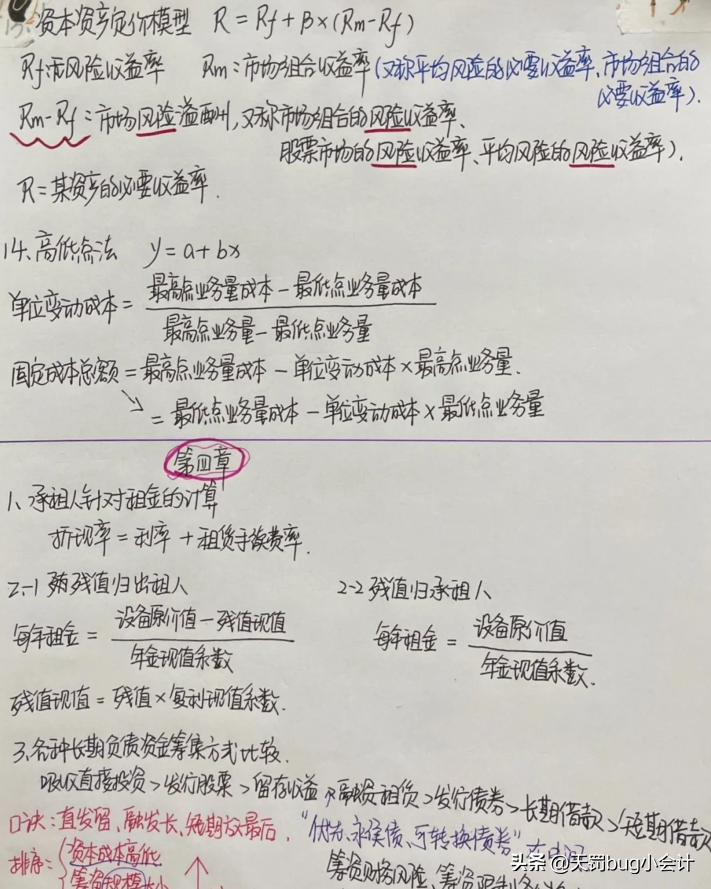 13、资本资产定价模型 R=Rf+β×(Rm-Rf)
Rf:无风险收益率 Rm:市场组合收益率(又称平均风险的必要收益率、市场组合的
必要收益率).
Rm-Rf:市场风险溢酬,又称市场组合的风险收益率、
股票市场的风险收益率、平均风险的风险收益率).
R=某资产的必要收益率.
14、高低点法 y=a+bx
单位变动成本=最高点业务量成本-最低点业务量成本
最高点业务量-最低点业务量
固定成本总额=最高点业务量成本-单位变动成本×最高点业务量.
=最低点业务量成本-单位变动成本×最低点业务量
第四章
1、承租人针对租金的计算
折现率=利率+租赁手续费率.
2-1 残值归出租人 2-2 残值归承租人
每年租金=设备原价值-残值现值 每年租金=设备原价值
年金现值系数 年金现值系数.
残值现值=残值×复利现值系数.
3、各种长期负债资金筹集方式比较.
吸收直接投资>发行股票>留存收益>融资租赁>发行债券>长期借款>短期借款
口诀:直发留、融发长、短期放最后,"优先、永续债、可转换债券"
排序: 资本成本高低
筹资规模大小 筹资财务风险、筹资
头条 @天罚bug小会计